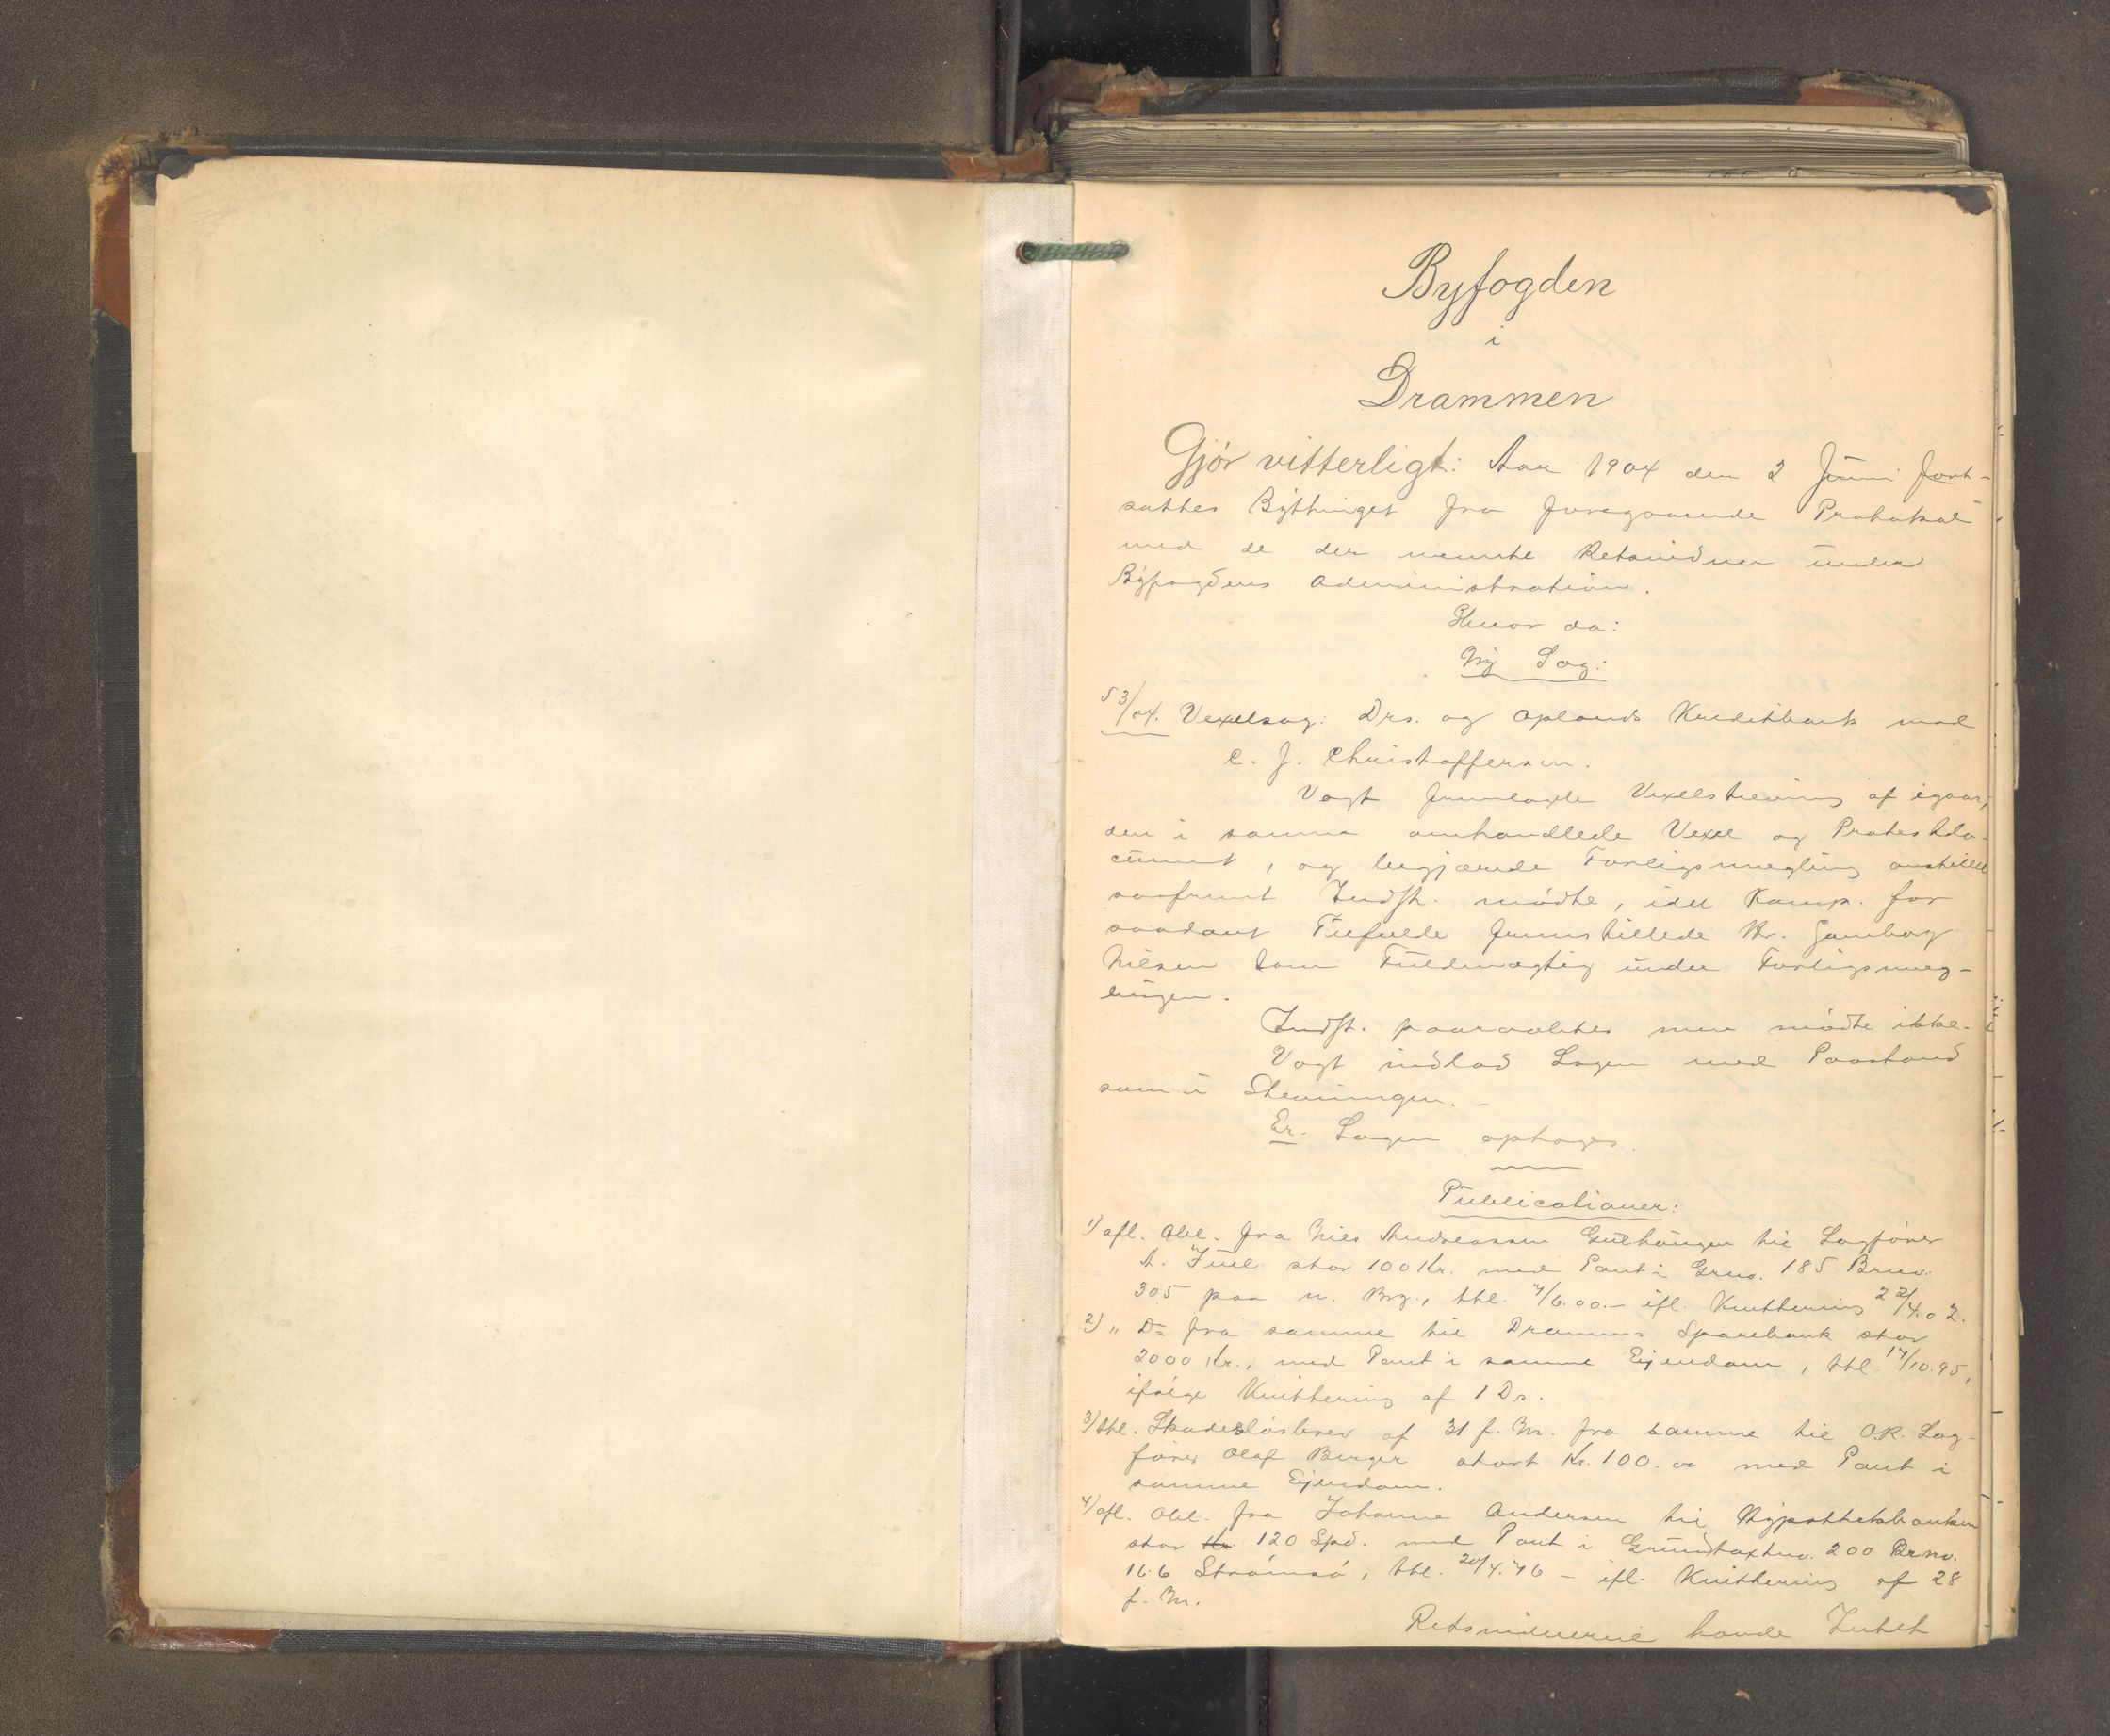 Byfogden
i
Drammen
Gjör vitterligt: Aar 1904 den 2 Juni fort-
sattes Bythinget fra foregaaende Protokol
med de der nævnte Retsvidner under
Byfogdens Administration.
Hvor da:
Ny Sag:
53/04. Vexelsag: Drs. og Oplands Kreditbank mod
C. J. Christoffersen.
Vogt fremlagde Vexelstevning af igaar,
den i samme omhandlede Vexel og Protestdo-
cument, og begjærede Forligsmegling anstillet
saafremt Indst. mödte, idet Komp. for
saadant Tilfælde fremstillede Hr. Gamborg
Nilsen som Fuldmægtig under Forligsmeg-
lingen.
Indst. paaraabtes men mödte ikke.
Vogt indlod Sagen med Paastand
som i Stevningen. -
Er. Sagen optoges.
Publicationer:
1) afl. Obl. fra Nils Andreassen Gulhaugen til Sagförer
A. Juel stor 100 Kr. med Pant i Grno. 185 Brno.
305 paa n. Brg., thl. 7/6.00. - ifl. Kvittering 22/4.02.
2) " Do fra samme til Drammens Sparebank stor
2000 Kr., med Pant i samme Ejendom, thl. 17/10.95,
ifölge Kvittering af 1 Ds.
3) thl. Skadeslösbrev af 31 f. M. fra samme til O.R. Sag-
förer Olaf Berger stort Kr. 100.00 med Pant i
samme Ejendom.
4) afl. Obl. fra Johanne Andersen til Hypothekbanken
stor Kr. 120 Spd. med Pant i Grundtaxtno. 200 Brno.
166 Strömsö, thl. 20/4.76 - ifl. Kvittering af 28
f. M.
Retsvidnerne havde Intet